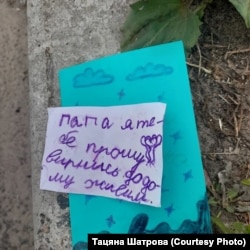 папа я те-
бе прошу
вирнись додо-
му живим.
Тацяна Шатрова (Courtesy Photo)